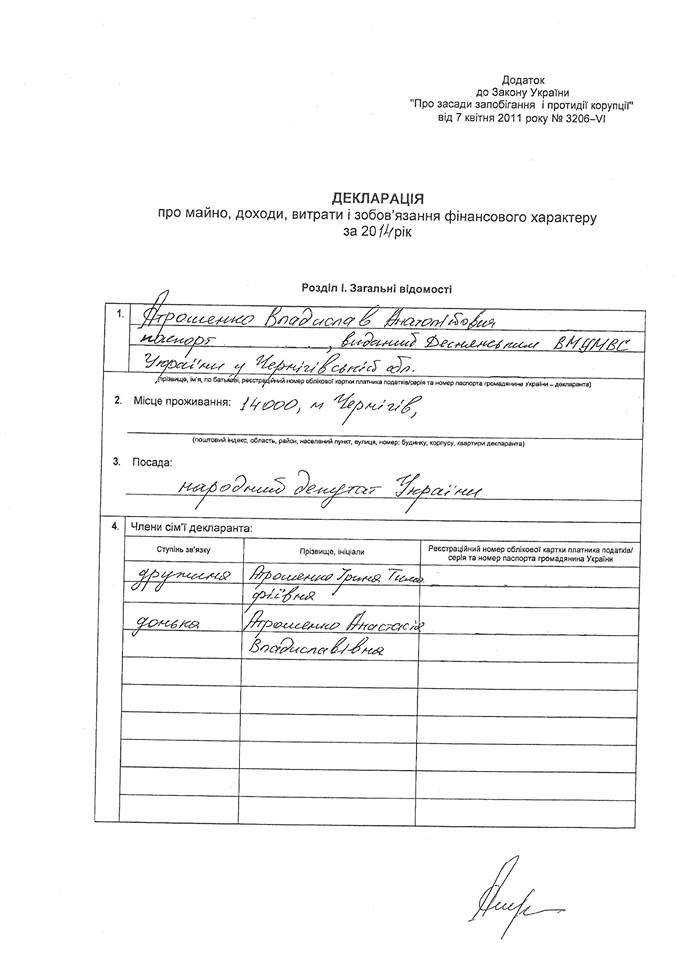 Додаток
до Закону України
"Про засади запобігання і протидії корупції"
від 7 квітня 2011 року № 3206–VI
ДЕКЛАРАЦІЯ
про майно, доходи, витрати і зобов'язання фінансового характеру
за 2014 рік
Розділ I. Загальні відомості
1. Атрошенко Владислав Анатолійович
паспорт , виданий Деснянським ВМУМВС
України у Чернігівській обл.
(прізвище, ім'я, по батькові, реєстраційний номер облікової картки платника податків/серія та номер паспорта громадянина України – декларанта)
2. Місце проживання: 14000, м Чернігів,
(поштовий індекс, область, район, населений пункт, вулиця, номер: будинку, корпусу, квартири декларанта)
3. Посада:
народний депутат України
4. Члени сім'ї декларанта:
Ступінь зв'язку Прізвище, ініціали Реєстраційний номер облікової картки платника податків/
серія та номер паспорта громадянина України
дружина Атрошенко Ірина Тимо
фіївна
донька Атрошенко Анастасія
Владиславівна